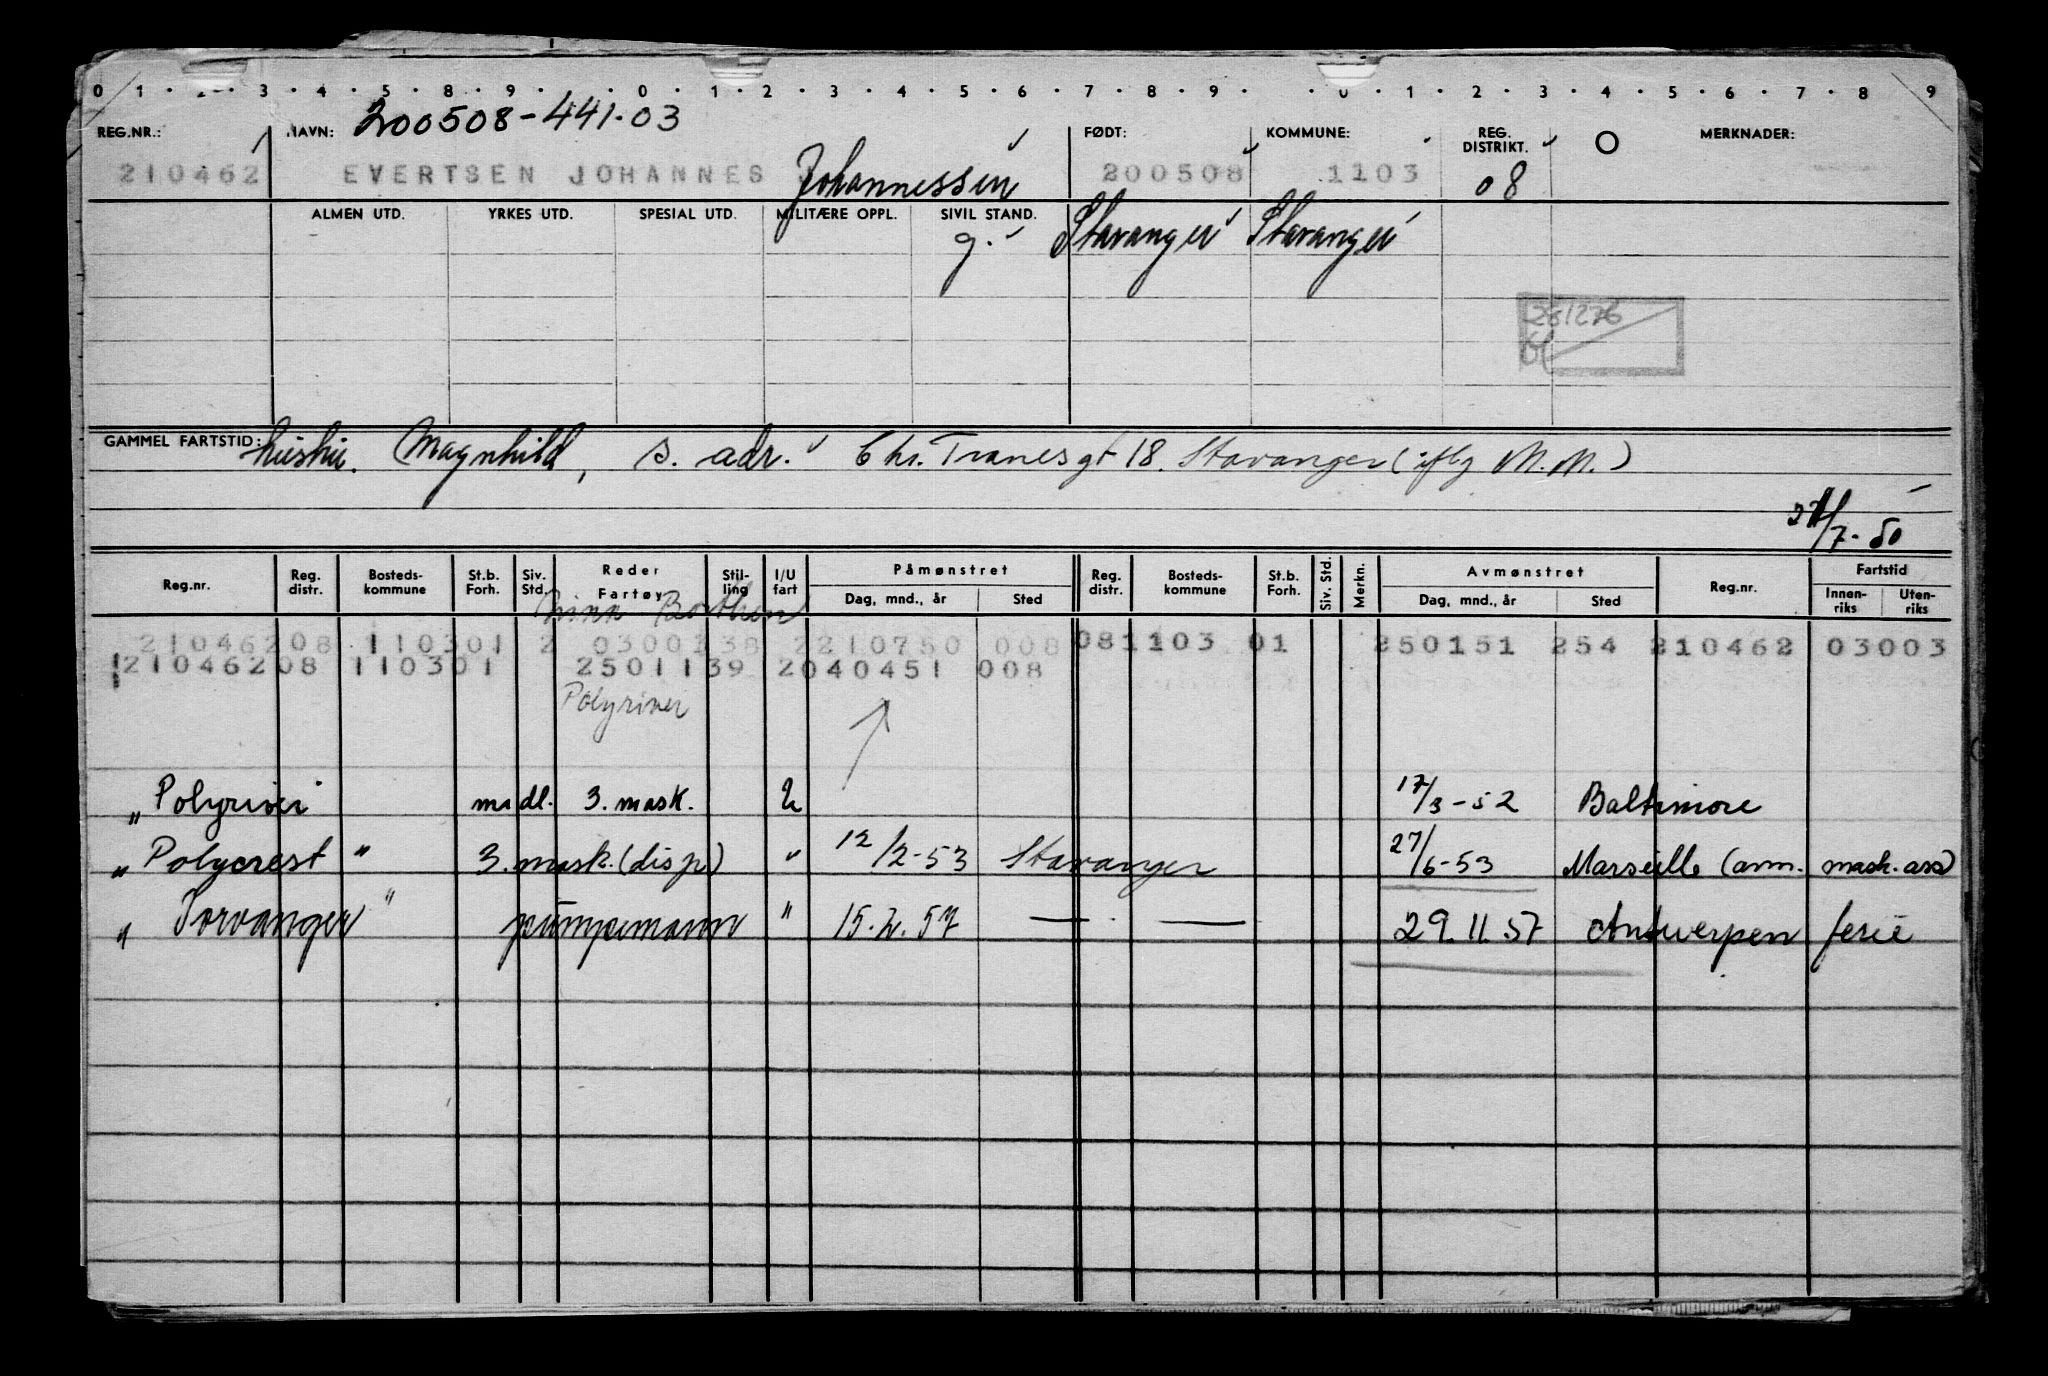 0 1 2 3 4 5 8 9 0 1 2 3 4 5 6 7 8 9 0 1 2 3 4 5 6 7 8 9
200508-441.03
REG.NR.: NAVN: FØDT: KOMMUNE: REG. DISTRIKT. MERKNADER:
210462 EVERTSEN JOHANNES Johannessen 200508 1103 08
ALMEN UTD. YRKES UTD. SPESIAL UTD. MILITÆRE OPPL. SIVIL STAND.
g. Stavanger Stavanger
281276
GAMMEL FARTSTID: hustru. Magnhild, s. adr. Chr. Tranesgt 18. Stavanger (iflg M.M.)
/7-50
Reg.nr. Reg. distr. Bosteds-kommune St.b. Forh. Siv. Std. Reder Fartøy Stil-ling I/U fart Påmønstret Dag, mnd., år Sted Reg. distr. Bosteds-kommune St.b. Forh. Siv. Std. Merkn. Avmønstret Dag, mnd., år Sted Reg.nr. Fartstid Innen-riks Uten-riks
Borthen
21046208 110301 2 0300138 2210750 008 081103 01 250151 254 210462 03003
21046208 110301 2501139 2040451 008
Polyriver
"Polyriver" madl. 3. mask. U 17/3-52 Baltimore
"Polycrest" 3. mask. (disp) " 12/2-53 Stavanger 27/6-53 Marseille (avm. mask. ass)
"Torvanger" pumpemann " 15.2.57 — — 29.11.57 Antwerpen ferie